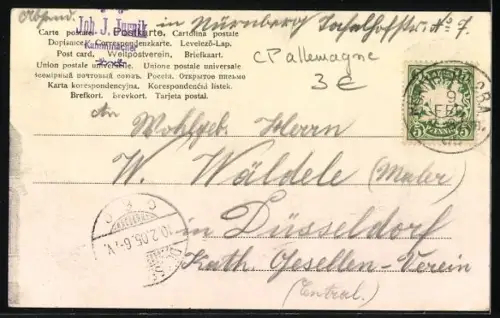 Absend. in Nürnberg Tafelhofstr. No 7.
Joh. J.
Kammmacher
Carte postale Postkarte. Cartolina postale
Dopisnice Correspondenzkarte. Levelező-Lap.
Post card. Weltpostverein. Briefkaart.
Union postale universelle. Unione postale universale
Всемірный почтовый союзъ. Россія. Открытое письмо
Karta korespondencyjna. Korespondenční lístek.
Brefkort. Brevkort. Tarjeta postal.
CP allemagne
3 €
NÜRNBERG
9 FEB
5 5
An
Wohlgeb. Herrn
W. Wäldele (Maler)
in Düsseldorf
10.2.05. 6-
Kath. Gesellen-Verein
(Central.)